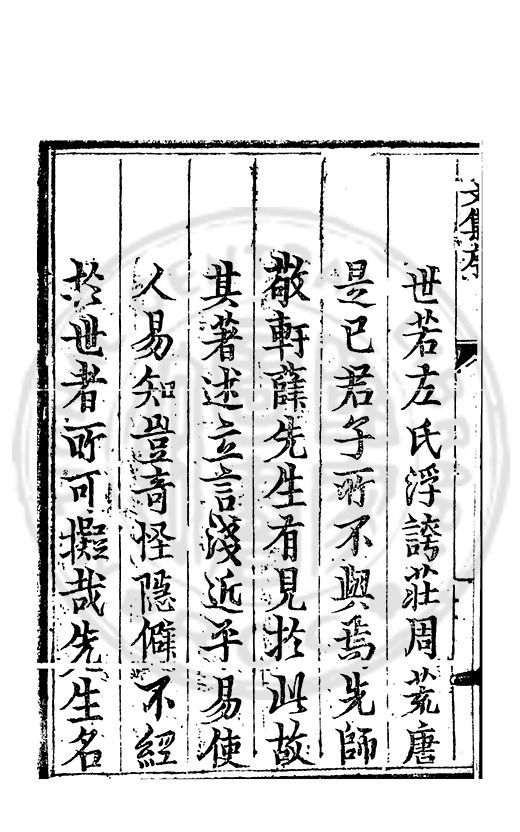 文集序
世若左氏浮誇莊周荒唐
是已君子所不與焉先師
敬軒薛先生有見扵此故
其著述立言淺近平易使
人易知豈奇怪隱僻不經
扵世者所可擬哉先生名